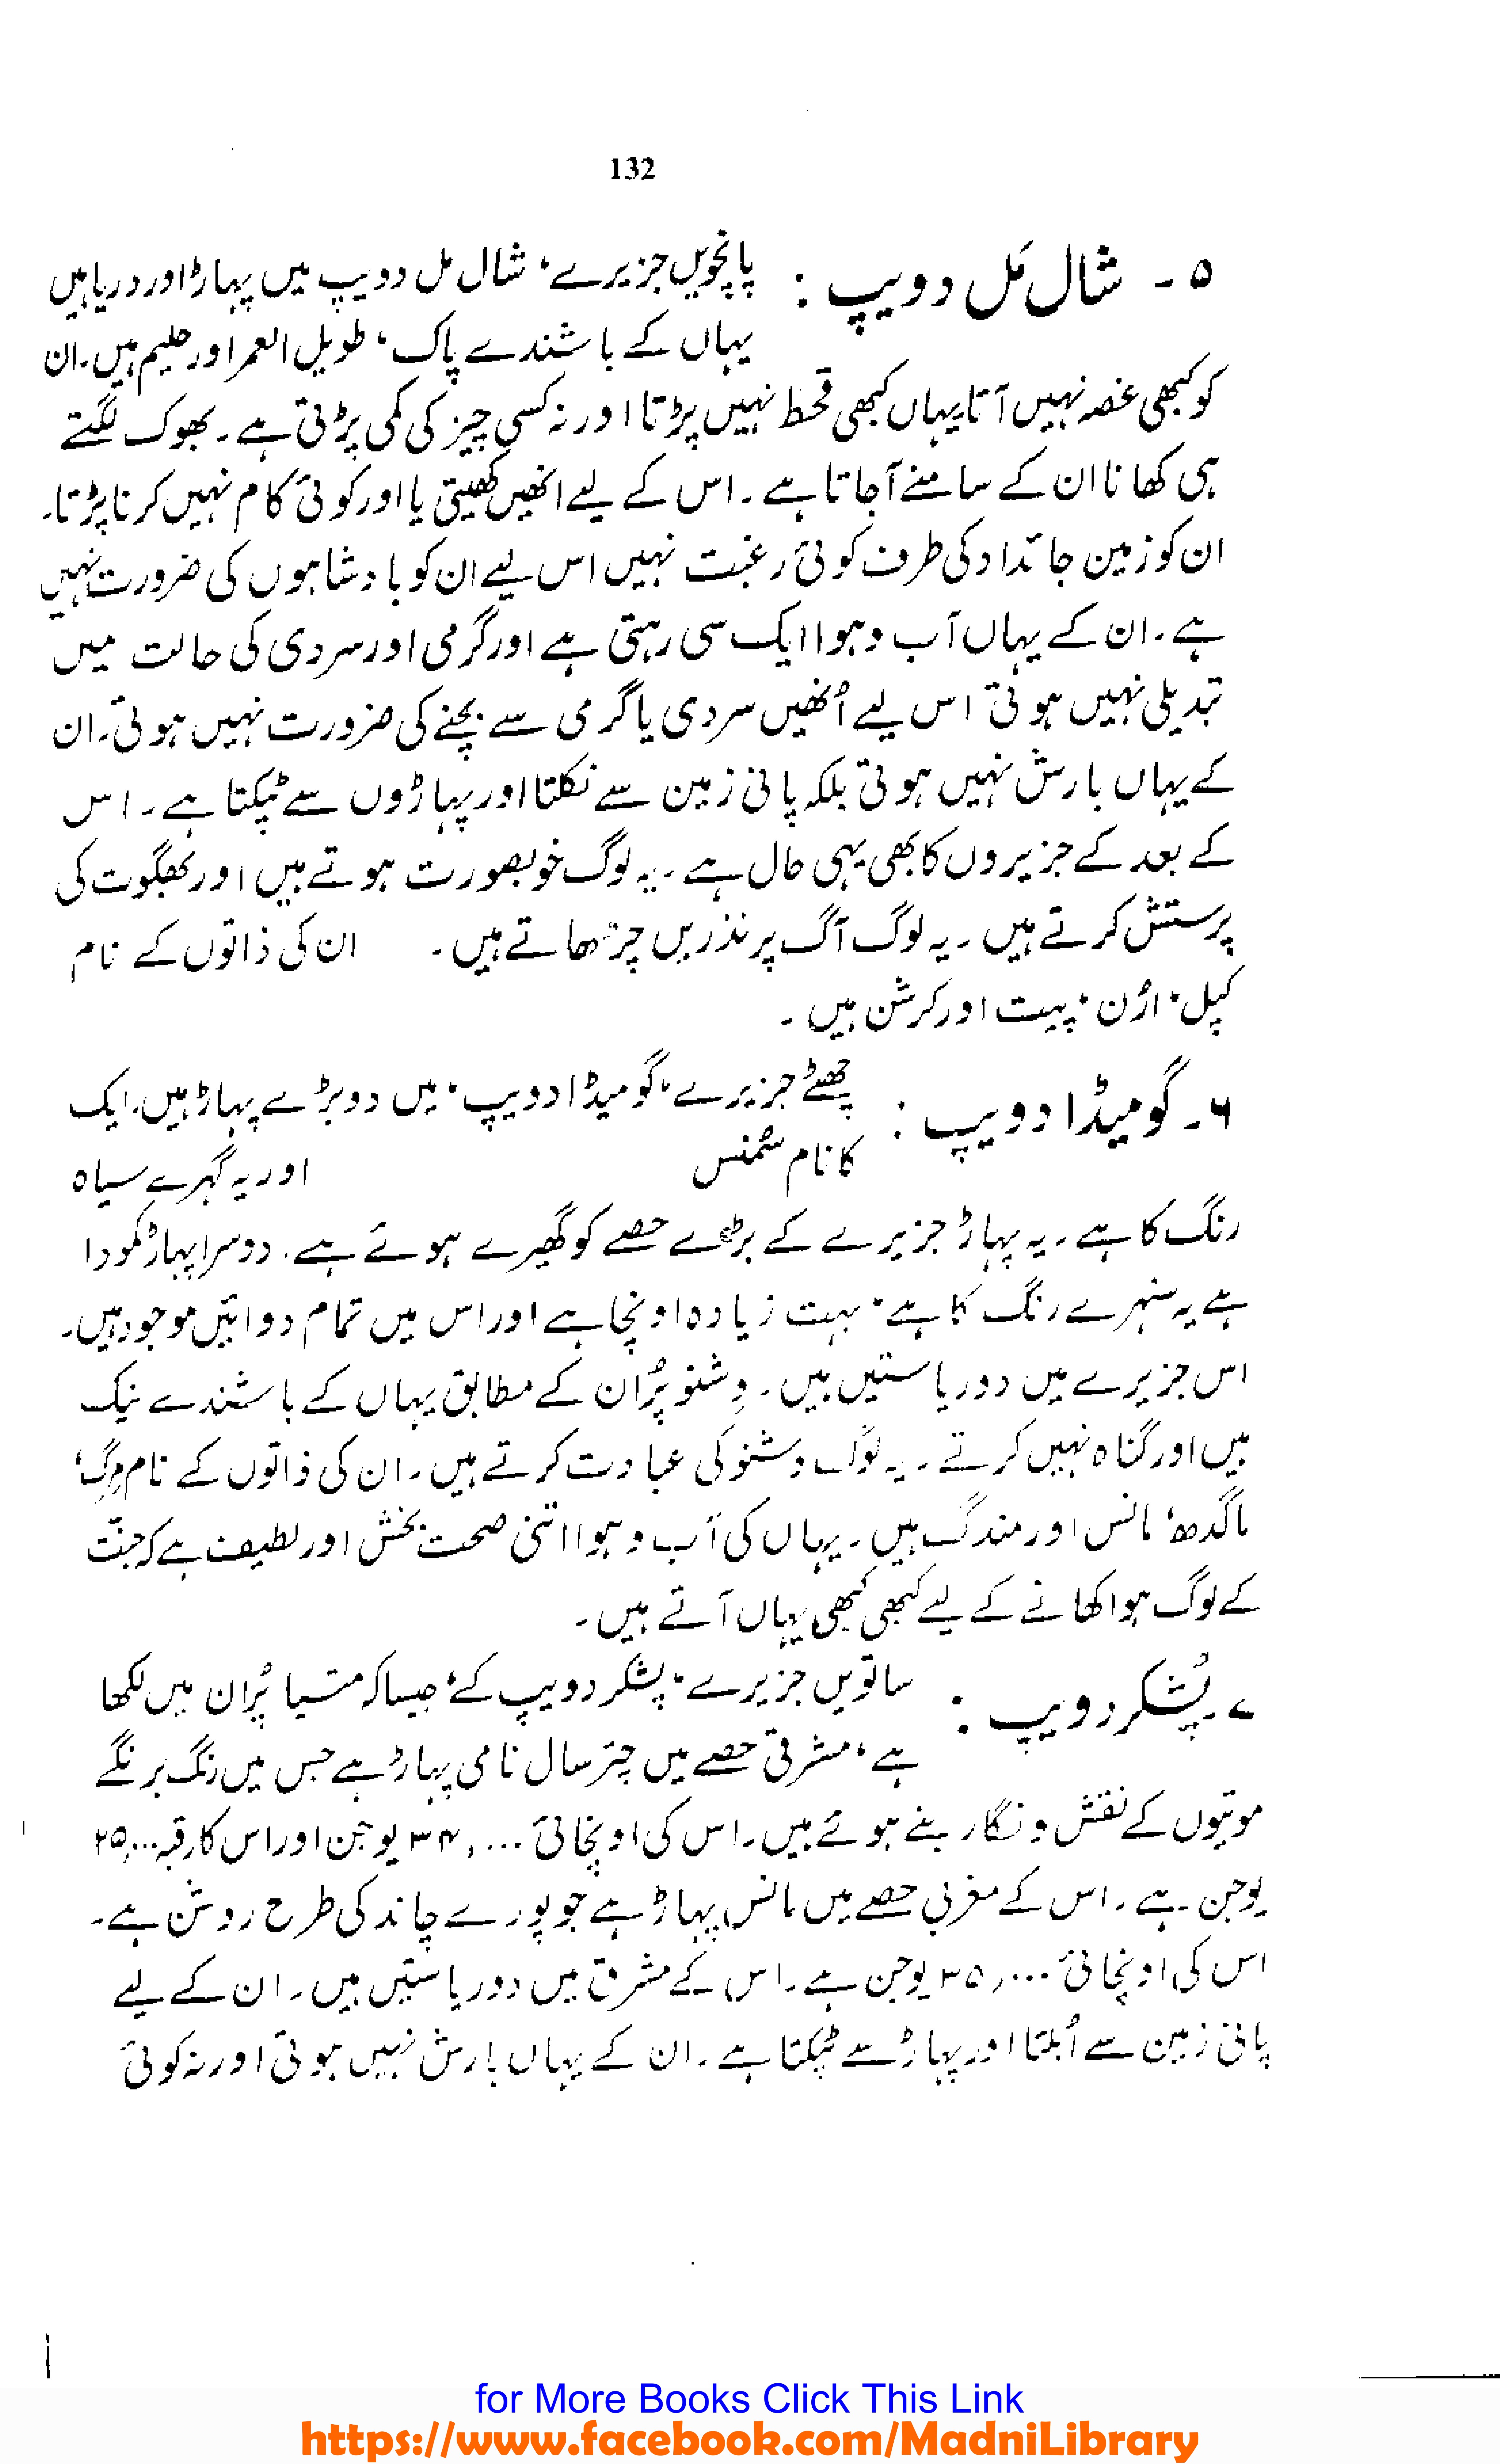 132
۵ - شال مَل دوویپ : پانچویں جزیرے، شال مل دوویپ میں پہاڑ اور دریا ہیں
یہاں کے باشندے پاک، طویل العمر اور حلیم ہیں۔ ان
کو کبھی غصہ نہیں آتا یہاں کبھی قحط نہیں پڑتا اور نہ کسی چیز کی کمی پڑتی ہے۔ بھوک لگتے
ہی کھانا ان کے سامنے آجاتا ہے۔ اس کے لیے انھیں کھیتی یا اور کوئی کام نہیں کرنا پڑتا۔
ان کو زمین جائداد کی طرف کوئی رغبت نہیں اس لیے ان کو بادشاہوں کی ضرورت نہیں
ہے۔ ان کے یہاں آب و ہوا ایک سی رہتی ہے اور گرمی اور سردی کی حالت میں
تبدیلی نہیں ہوتی اس لیے اُنھیں سردی یا گرمی سے بچنے کی ضرورت نہیں ہوتی۔ ان
کے یہاں بارش نہیں ہوتی بلکہ پانی زمین سے نکلتا اور پہاڑوں سے ٹپکتا ہے۔ اس
کے بعد کے جزیروں کا بھی یہی حال ہے۔ یہ لوگ خوبصورت ہوتے ہیں اور بھگوت کی
پرستش کرتے ہیں۔ یہ لوگ آگ پر نذریں چڑھاتے ہیں۔ ان کی ذاتوں کے نام
کپل، ارُن، پیت اور کرشن ہیں۔
۶۔ گومیڈا دوویپ : چھٹے جزیرے، گومیڈا دوویپ، میں دو بڑے پہاڑ ہیں، ایک
کا نام سُمنس اور یہ گہرے سیاہ
رنگ کا ہے۔ یہ پہاڑ جزیرے کے بڑے حصے کو گھیرے ہوئے ہے۔ دوسرا پہاڑ کمودا
ہے یہ سنہرے رنگ کا ہے، بہت زیادہ اونچا ہے اور اس میں تمام دوائیں موجود ہیں۔
اس جزیرے میں دو ریاستیں ہیں۔ وِشنو پُران کے مطابق یہاں کے باشندے نیک
ہیں اور گناہ نہیں کرتے۔ یہ لوگ وشنو کی عبادت کرتے ہیں۔ ان کی ذاتوں کے نام مِرگ،
ماگدھ، مانس اور مندگ ہیں۔ یہاں کی آب و ہوا اتنی صحت بخش اور لطیف ہے کہ جنّت
کے لوگ ہوا کھانے کے لیے کبھی کبھی یہاں آتے ہیں۔
۷۔ پُشکر دویپ : ساتویں جزیرے، پشکر دویپ کے، جیسا کہ متسیا پُران میں لکھا
ہے، مشرقی حصے میں چتر سال نامی پہاڑ ہے جس میں رنگ برنگے
موتیوں کے نقش و نگار بنے ہوئے ہیں۔ اس کی اونچائی ۳۴,۰۰۰ یوجن اور اس کا رقبہ ۲۵,۰۰۰
یوجن ہے۔ اس کے مغربی حصے میں مانس پہاڑ ہے جو پورے چاند کی طرح روشن ہے۔
اس کی اونچائی ۳۵,۰۰۰ یوجن ہے۔ اس کے مشرق میں دو ریاستیں ہیں۔ ان کے لیے
پانی زمین سے اُبلتا اور پہاڑ سے ٹپکتا ہے۔ ان کے یہاں بارش نہیں ہوتی اور نہ کوئی
for More Books Click This Link
https://www.facebook.com/MadniLibrary